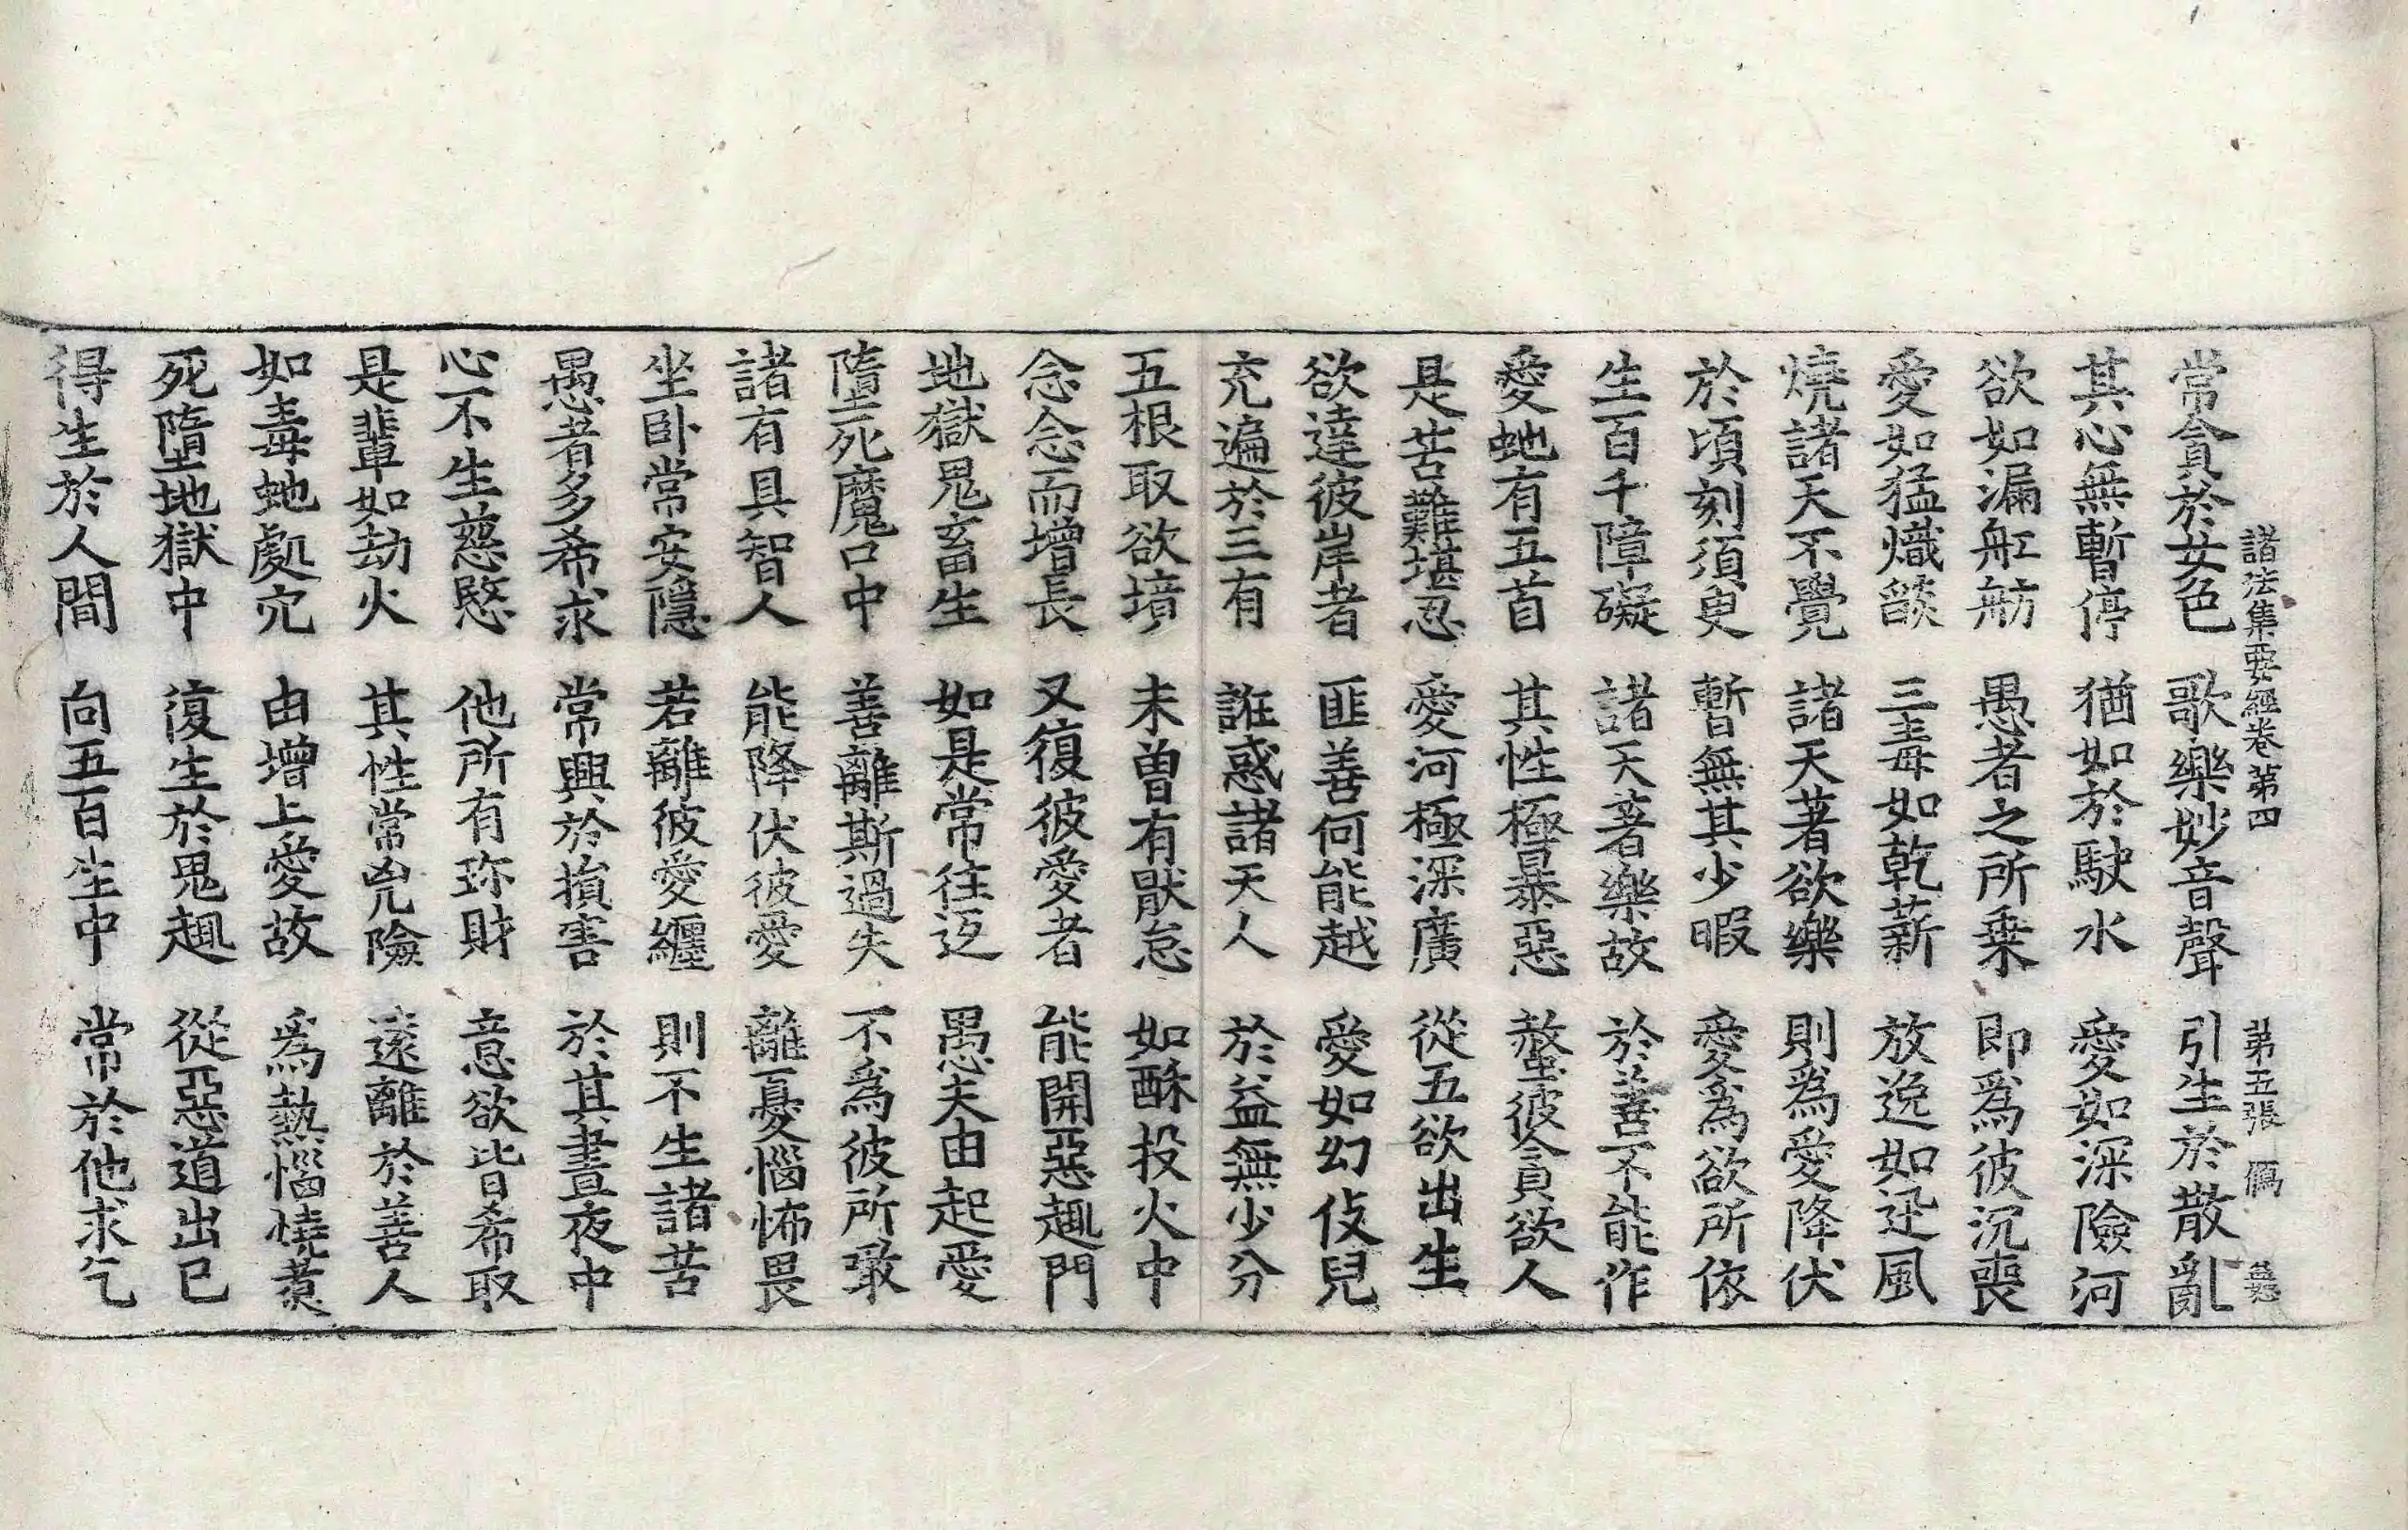 諸法集要經卷第四 第五張 傌
常貪於女色 歌樂妙音聲 引生於散亂
其心無暫停 猶如於駛水 愛如深險河
欲如漏舡舫 愚者之所乗 即爲彼沉喪
愛如猛熾燄 三毒如乾薪 放逸如迅風
燒諸天不覺 諸天著欲樂 則爲愛降伏
於頃刻須臾 暫無其少暇 愛爲欲所依
生百千障礙 諸天著樂故 於善不能作
愛虵有五首 其性極暴惡 螫彼貪欲人
是苦難堪忍 愛河極深廣 從五欲出生
欲達彼岸者 匪善何能越 愛如幻伎兒
充遍於三有 誑惑諸天人 於益無少分
五根取欲境 未曽有猒怠 如酥投火中
念念而增長 又復彼愛者 能開惡趣門
地獄鬼畜生 如是常往返 愚夫由起愛
墮死魔口中 善離斯過失 不爲彼所噉
諸有具智人 能降伏彼愛 離憂惱怖畏
坐卧常安隱 若離彼愛纏 則不生諸苦
愚者多希求 常興於損害 於其晝夜中
心不生慈愍 他所有珎財 意欲皆希取
是輩如劫火 其性常兇險 遠離於善人
如毒虵處穴 由增上愛故 爲熱惱燒煑
死墮地獄中 復生於鬼趣 從惡道出已
得生於人間 向五百生中 常於他求乞